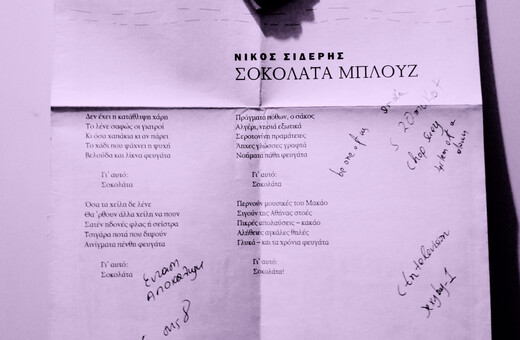 ΝΙΚΟΣ ΣΙΔΕΡΗΣ
ΣΟΚΟΛΑΤΑ ΜΠΛΟΥΖ
Δεν έχει η κατάθλιψη χάρη
Το λένε σαφώς οι γιατροί
Κι όσα χαπάκια κι αν πάρει
Το χάδι που ψάχνει η ψυχή
Βελούδα και λίκνα φευγάτα
Γι' αυτό:
Σοκολάτα
Όσα τα χείλη δε λένε
Θα 'ρθουν άλλα χείλη να πουν
Σατέν ηδονές φλας ή σείστρα
Τσιγάρα ποτά που διψούν
Αινίγματα πένθη φευγάτα
Γι' αυτό:
Σοκολάτα
Πράγματα πόθων, ο σάκος
Αλγέρι, νησιά εξωτικά
Σεροτονίνη πραμάτειες
γλώσσες γραφτά
Νοήματα πάθη φευγάτα
Γι' αυτό:
Σοκολάτα
Περνούν μουσικές του Μακάο
Σιγούν τις Αθήνας στοές
Πικρές απολαύσεις – κακάο
Αλήθειες αγκάλες θηλές
Γλυκά – και τα χρόνια φευγάτα
Γι' αυτό:
Σοκολάτα!
be one of us
Chop suey
Ένταση